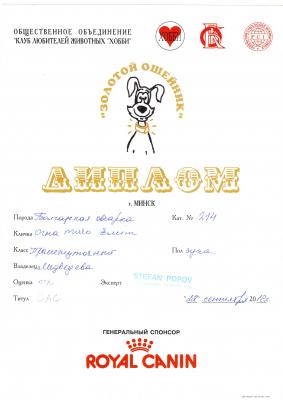 ОБЩЕСТВЕННОЕ ОБЪЕДИНЕНИЕ
"КЛУБ ЛЮБИТЕЛЕЙ ЖИВОТНЫХ "ХОББИ"
ХОББИ
F C I
"ЗОЛОТОЙ ОШЕЙНИК"
ДИПЛОМ
г. МИНСК
Порода Болгарская овчарка Кат. № 214
Кличка
Класс Промежуточный Пол сука
Владелец Медведева
Оценка отл Эксперт STEFAN POPOV
Титул CAC сентября
ГЕНЕРАЛЬНЫЙ СПОНСОР
ROYAL CANIN